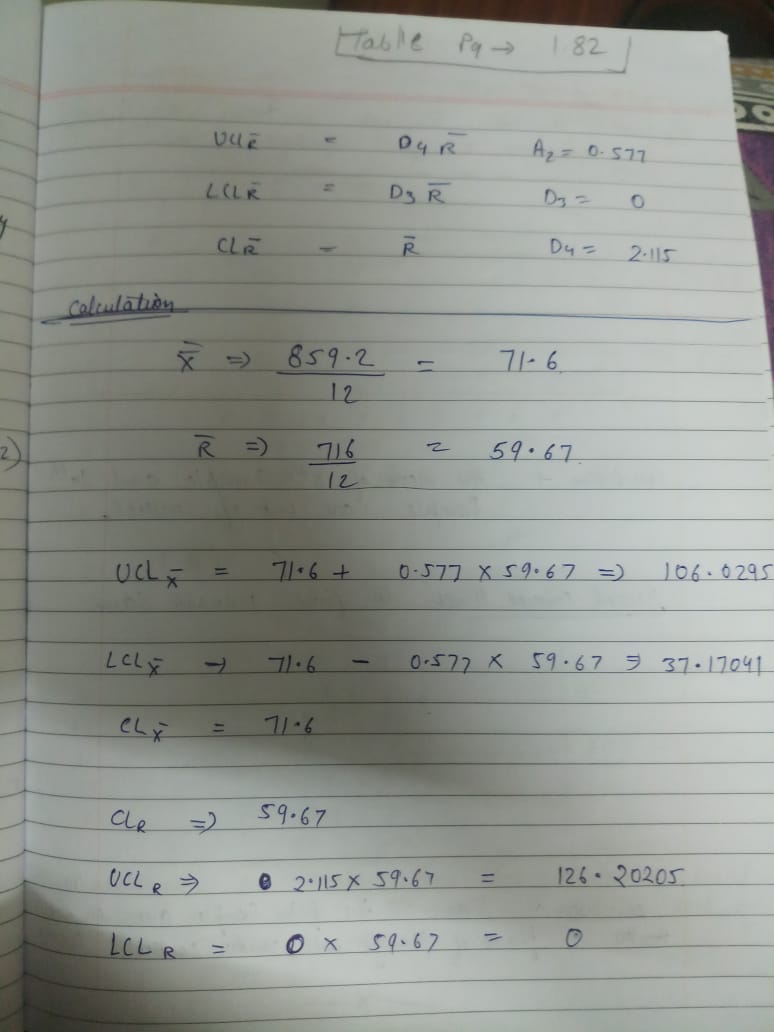 Table Pg → 182
UCL R̄ = D4 R̄ A2 = 0.577
LCL R̄ = D3 R̄ D3 = 0
CL R̄ – R̄ D4 = 2.115
Calculation
X̿ ⇒ 859.2/12 = 71.6
2)
R̄ ⇒ 716/12 = 59.67
UCL X̄ = 71.6 + 0.577 × 59.67 ⇒ 106.0295
LCL X̄ → 71.6 – 0.577 × 59.67 ⇒ 37.17041
CL X̄ = 71.6
CL R ⇒ 59.67
UCL R ⇒ 2.115 × 59.67 = 126.20205
LCL R = 0 × 59.67 = 0